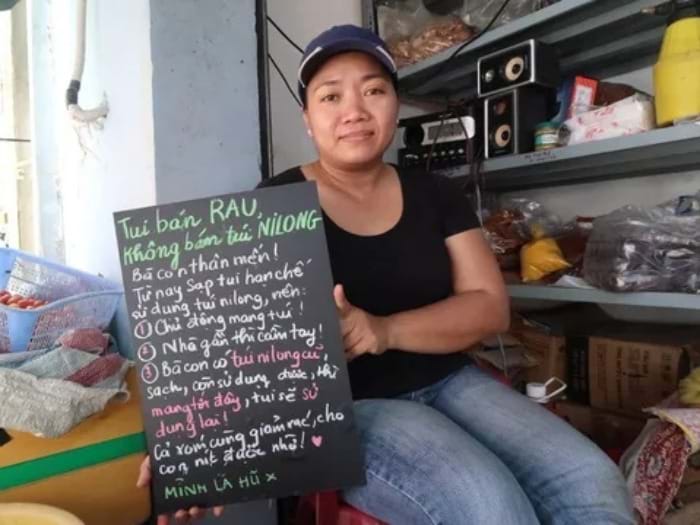 Tui bán RAU,
không bán túi NILONG
Bà con thân mến!
Từ nay sạp tui hạn chế
sử dụng túi nilong, nên:
① Chủ động mang túi!
② Nhà gần thì cầm tay!
③ Bà con có túi nilong cũ,
sạch, còn sử dụng được, thì
mang tới đây, tui sẽ sử
dụng lại!
Cả xóm cùng giảm rác, cho
con nít được nhờ! ♥
MÌNH LÀ HŨ x